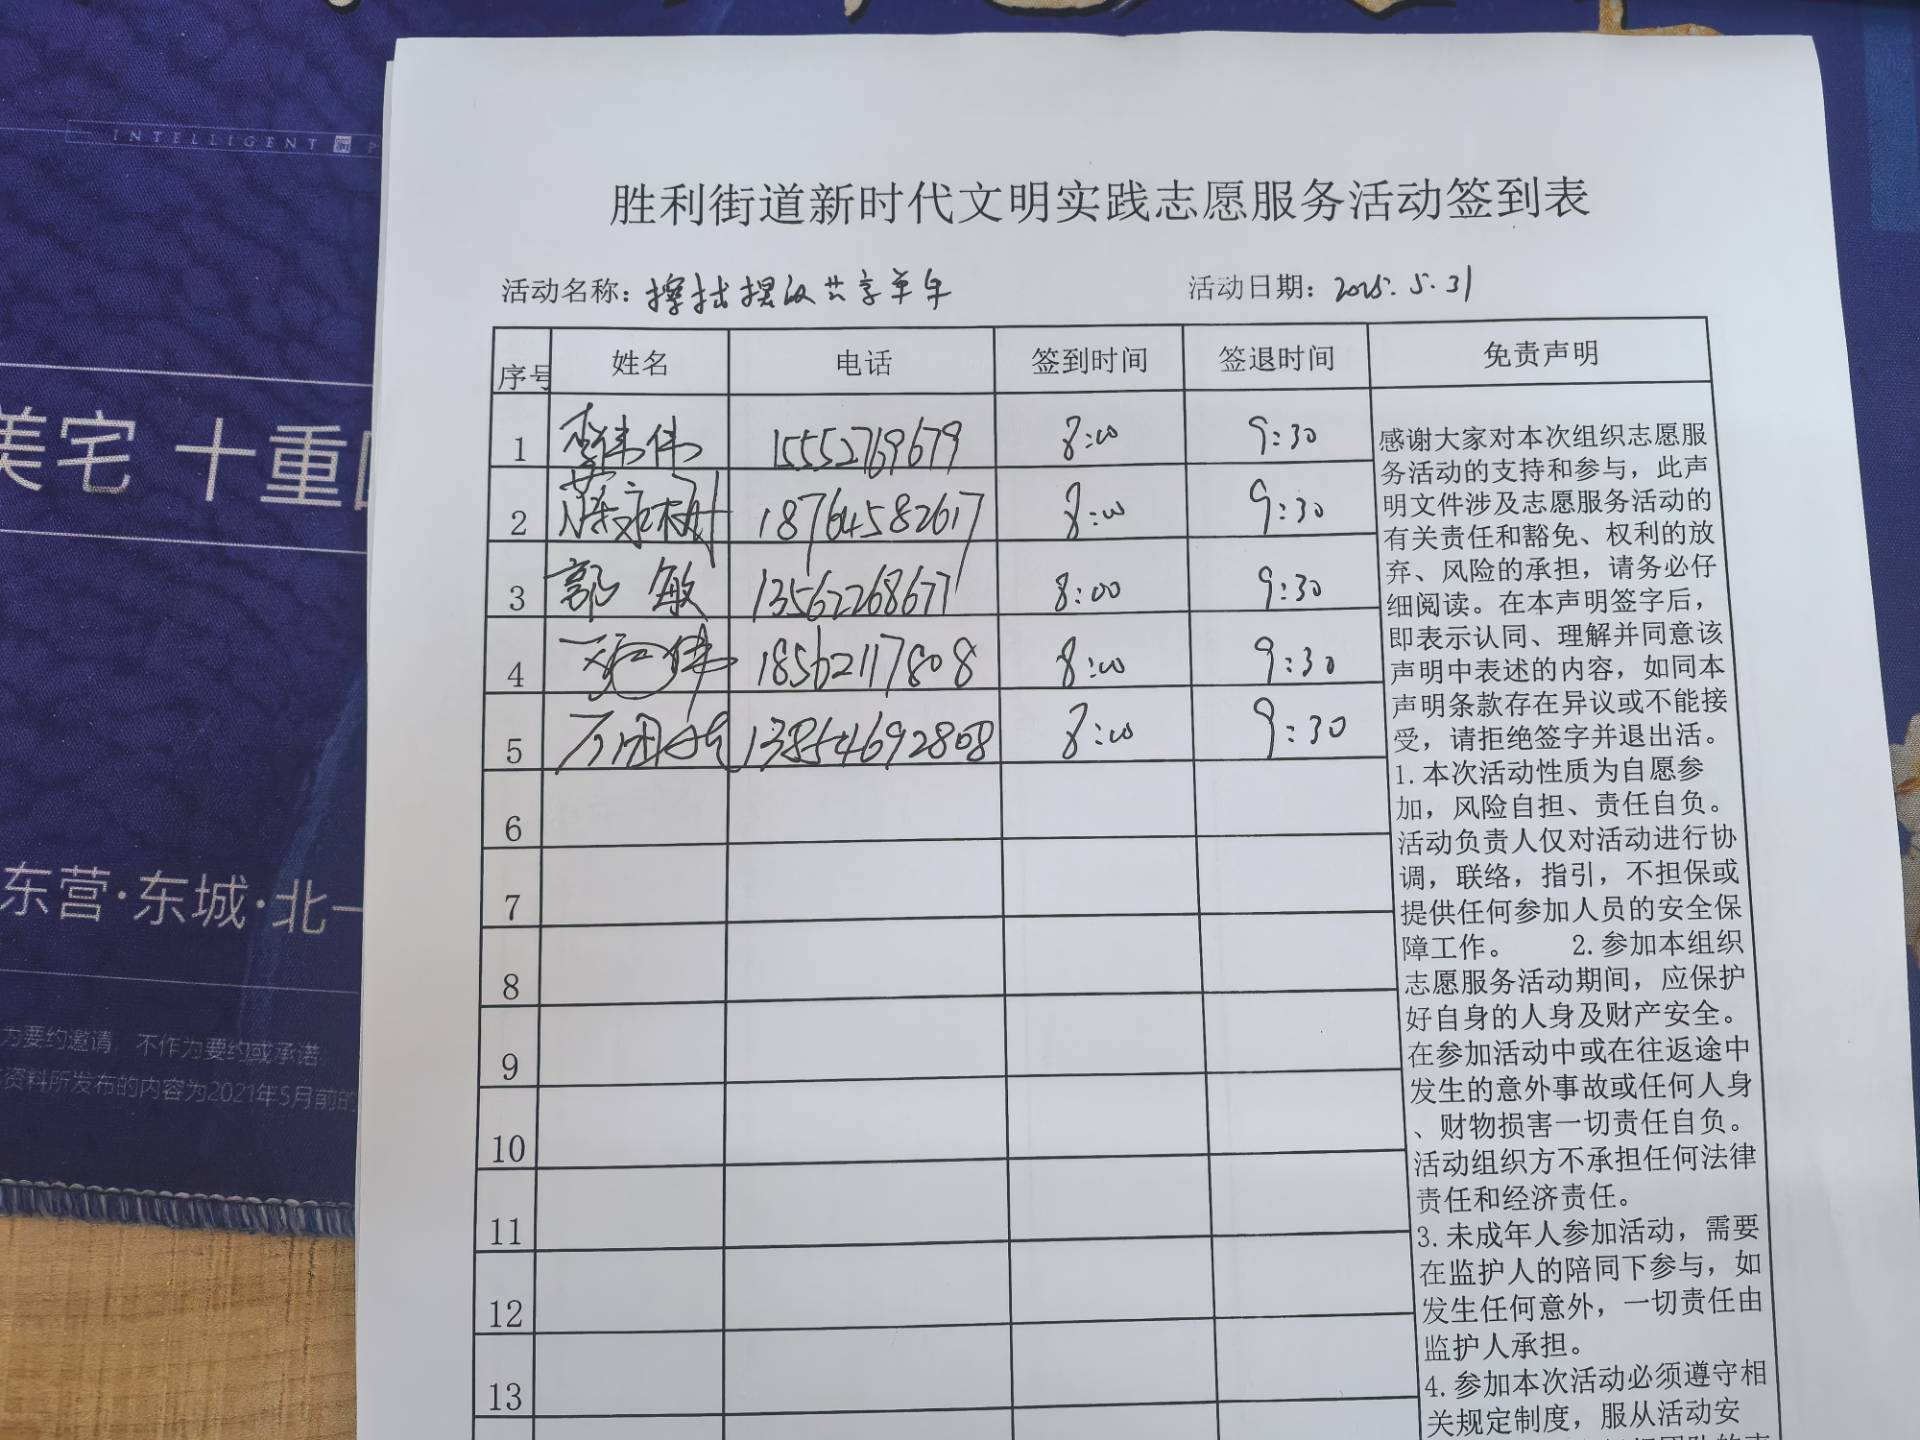 INTELLIGENT
美宅 十重
东营·东城·北一
为要约邀请，不作为要约或承诺
资料所发布的内容为2021年5月前的
胜利街道新时代文明实践志愿服务活动签到表
活动名称：擦拭摆放共享单车 活动日期：2025.5.31
序号 姓名 电话 签到时间 签退时间 免责声明
1 李伟伟 15552769679 8:00 9:30
2 18764582617 8:00 9:30
3 郭敏 13562268677 8:00 9:30
4 18562117808 8:00 9:30
5 13854692808 8:00 9:30
6
7
8
9
10
11
12
13
感谢大家对本次组织志愿服
务活动的支持和参与，此声
明文件涉及志愿服务活动的
有关责任和豁免、权利的放
弃、风险的承担，请务必仔
细阅读。在本声明签字后，
即表示认同、理解并同意该
声明中表述的内容，如同本
声明条款存在异议或不能接
受，请拒绝签字并退出活。
1.本次活动性质为自愿参
加，风险自担、责任自负。
活动负责人仅对活动进行协
调，联络，指引，不担保或
提供任何参加人员的安全保
障工作。 2.参加本组织
志愿服务活动期间，应保护
好自身的人身及财产安全。
在参加活动中或在往返途中
发生的意外事故或任何人身
、财物损害一切责任自负。
活动组织方不承担任何法律
责任和经济责任。
3.未成年人参加活动，需要
在监护人的陪同下参与，如
发生任何意外，一切责任由
监护人承担。
4.参加本次活动必须遵守相
关规定制度，服从活动安